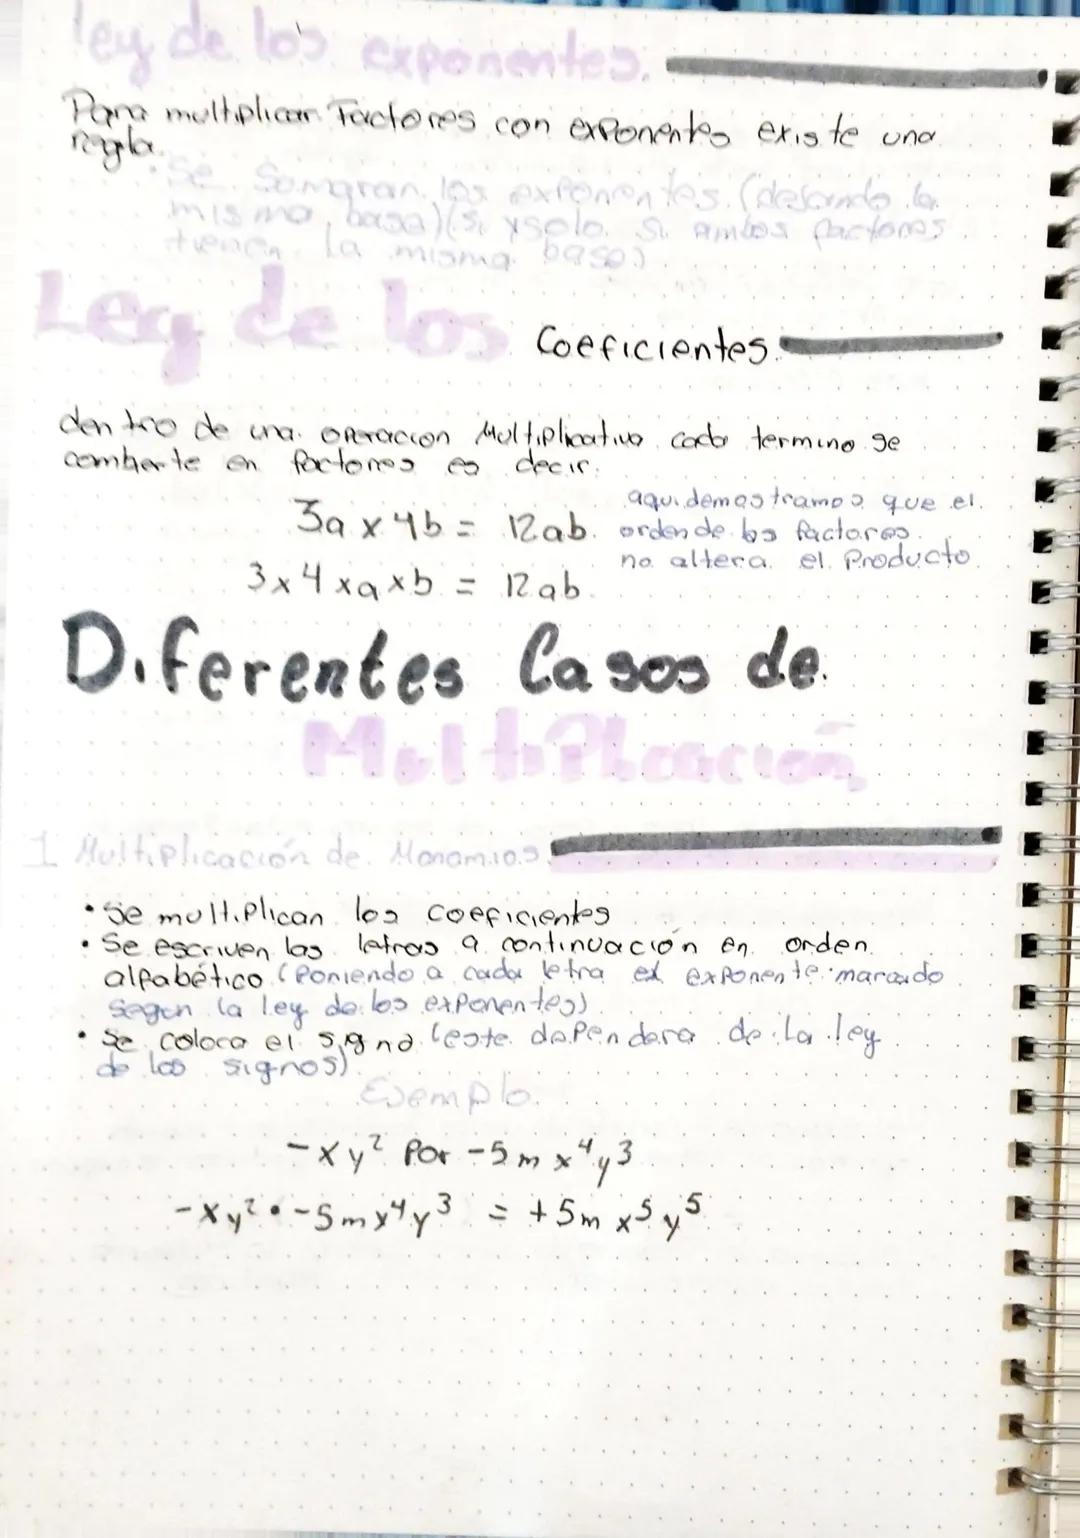 ley de los exponentes.
Para multiplicar Factores con exponentes existe una
regla.
• Se Sumaran los exponentes (dejando la
misma base) (si y solo si ambos factores
tienen la misma base)
Ley de los Coeficientes
dentro de una operacion Multiplicativa cada termino se
combierte en factores es decir:
3a x 4b = 12ab. aqui demostramos que el
orden de los factores
no altera el Producto
3 x 4 x a x b = 12ab.
Diferentes Casos de
Multiplicación
1 Multiplicación de Monomios.
• Se multiplican los coeficientes
• Se escriven las letras a continuación en orden
alfabético (Poniendo a cada letra el exponente marcado
segun la ley de los exponentes)
• Se coloca el signo (este dependera de la ley
de los signos)
Ejemplo.
-xy² Por -5mx⁴y³
-xy² • -5mx⁴y³ = +5mx⁵y⁵